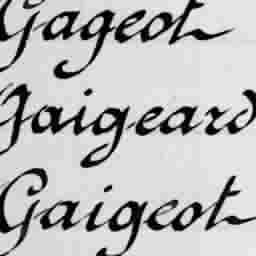 Gageot
Gaigeard
Gaigeot